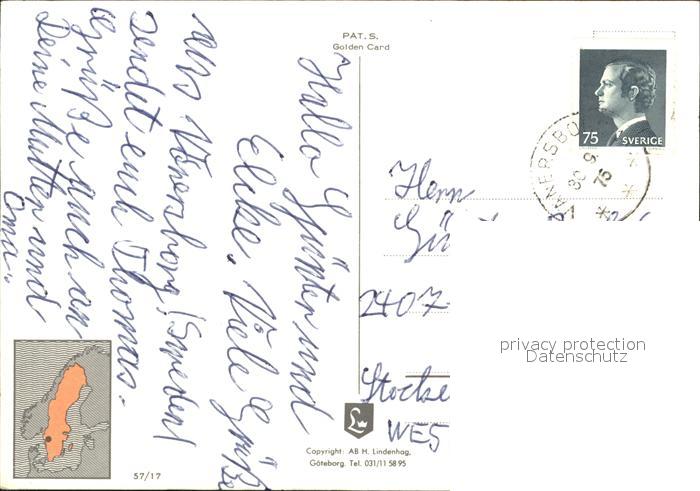 PAT. S.
Golden Card
Hallo Günter und
Elike. Viele Grüße
aus Vänersborg (Sweden)
sendet euch Thomas.
Grüße auch an
Deine Mutter und
Oma.
75 SVERIGE
VÄNERSBO
30 9.
75
Herrn
2407-
Stocke
WES
privacy protection
Datenschutz
Copyright: AB H. Lindenhag,
Göteborg. Tel. 031/11 58 95
57/17